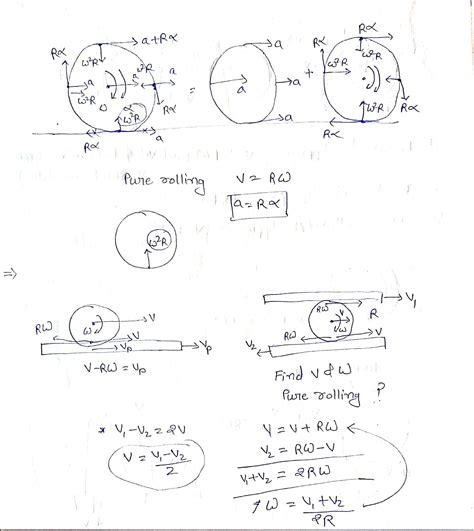 a+Rα
Rα
ω²R
ω²R
a
a
a
ω²R
ω
Rα
α
ω²R
Rα
a
=
a
a
a
a
+
Rα
Rα
ω²R
ω²R
ω²R
Rα
Rα
Pure rolling V = Rω
a = Rα
ω²R
⇒
Rω
ω
V
V
Vp
Vp
V-Rω = Vp
V₁
Rω
R
V
ω
Rω
V
V₂
Find V & ω
Pure rolling ?
* V₁-V₂ = 2V
V = V₁-V₂/2
V = V + Rω
V₂ = Rω-V
V₁+V₂ = 2Rω
ω = V₁+V₂/2R